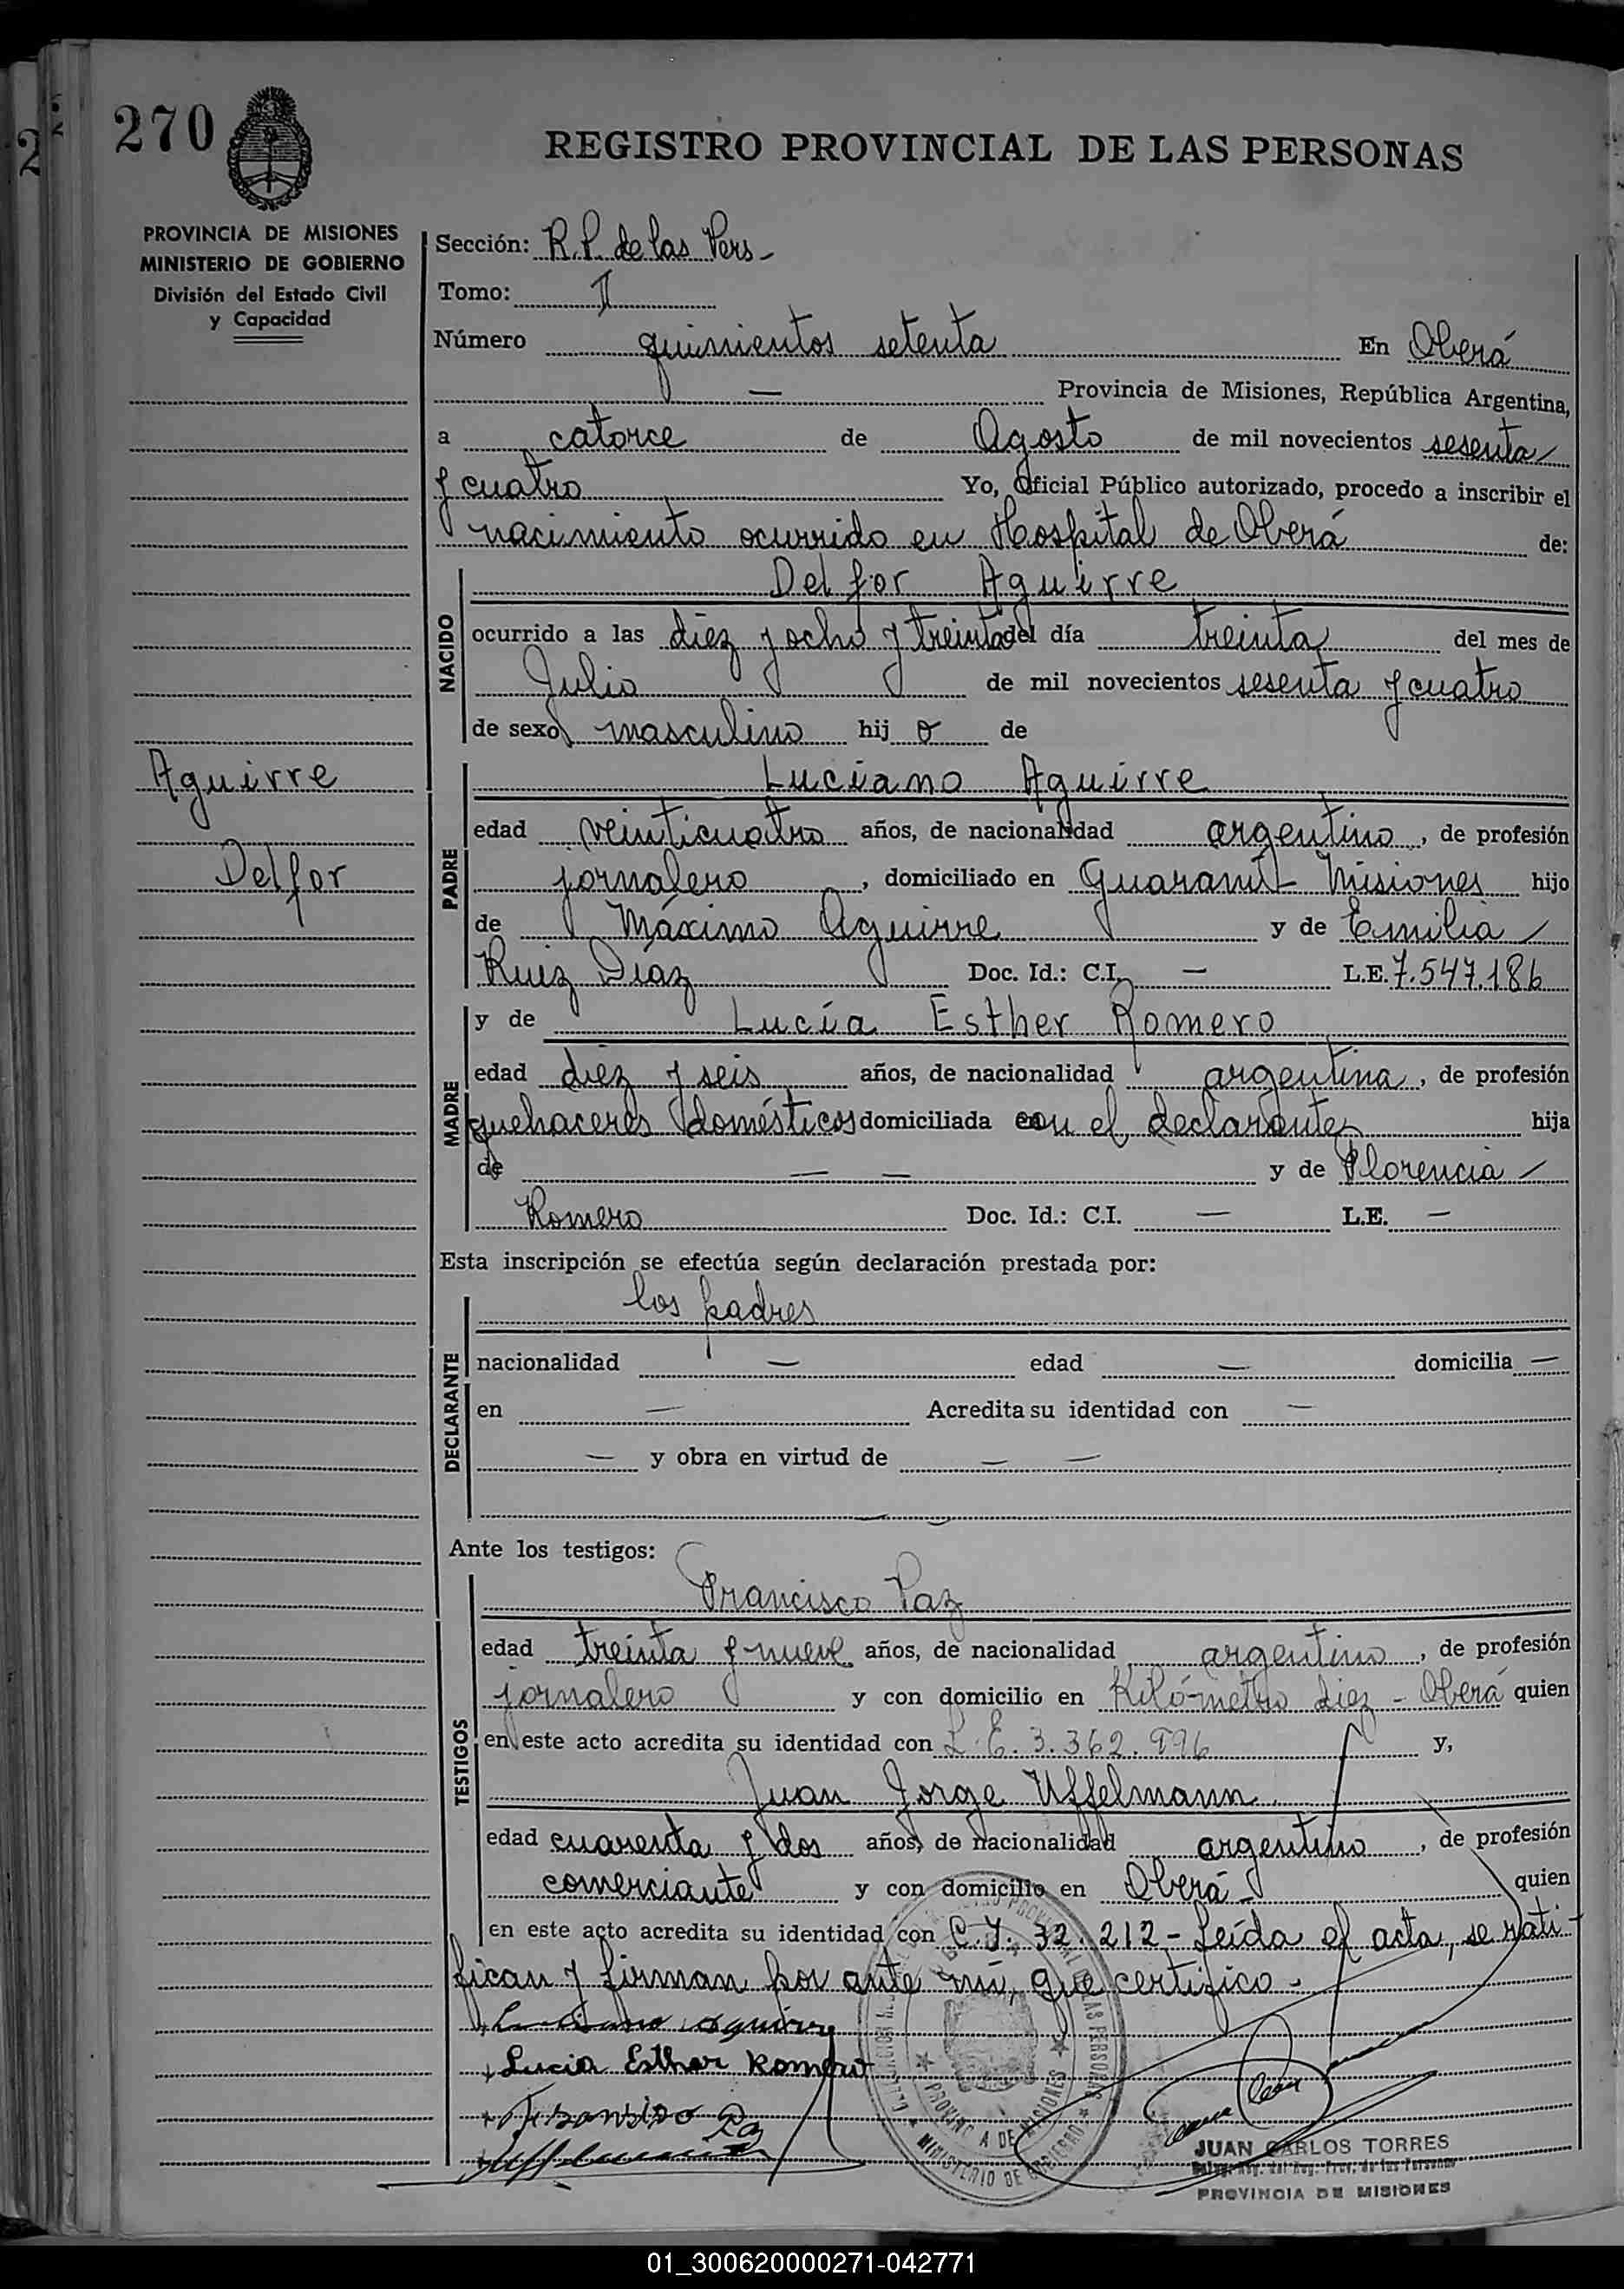 270
REGISTRO PROVINCIAL DE LAS PERSONAS
PROVINCIA DE MISIONES
MINISTERIO DE GOBIERNO
División del Estado Civil
y Capacidad
Sección: R.P. de las Pers -
Tomo: I
Número quinientos setenta En Oberá
— Provincia de Misiones, República Argentina,
a catorce de Agosto de mil novecientos sesenta
y cuatro Yo, Oficial Público autorizado, procedo a inscribir el
nacimiento ocurrido en Hospital de Oberá de:
NACIDO
Delfor Aguirre
ocurrido a las diez y ocho y treinta del día treinta del mes de
Julio de mil novecientos sesenta y cuatro
de sexo masculino hij o de
Aguirre
Delfor
PADRE
Luciano Aguirre
edad veinticuatro años, de nacionalidad argentino, de profesión
jornalero, domiciliado en Guaraní - Misiones hijo
de Máximo Aguirre y de Emilia
Ruiz Díaz Doc. Id.: C.I. — L.E. 7.547.186
MADRE
y de Lucía Esther Romero
edad diez y seis años, de nacionalidad argentina, de profesión
quehaceres domésticos domiciliada con el declarante hija
de — — y de Florencia
Romero Doc. Id.: C.I. — L.E. —
Esta inscripción se efectúa según declaración prestada por:
DECLARANTE
los padres
nacionalidad — edad — domicilia —
en — Acredita su identidad con —
— y obra en virtud de — —
Ante los testigos:
TESTIGOS
Francisco Paz
edad treinta y nueve años, de nacionalidad argentino, de profesión
jornalero y con domicilio en Kilómetro diez - Oberá quien
en este acto acredita su identidad con L.E. 3.362.996 y,
Juan Jorge Uffelmann
edad cuarenta y dos años, de nacionalidad argentino, de profesión
comerciante y con domicilio en Oberá - quien
en este acto acredita su identidad con C.I. 32.212 - Leída el acta, se rati-
fican y firman por ante mí, que certifico -
Luciano Aguirre
Lucia Esther Romero
Fransisco Paz
PROVINCIA DE MISIONES
MINISTERIO DE GOBIERNO
JUAN CARLOS TORRES
PROVINCIA DE MISIONES
01_300620000271-042771